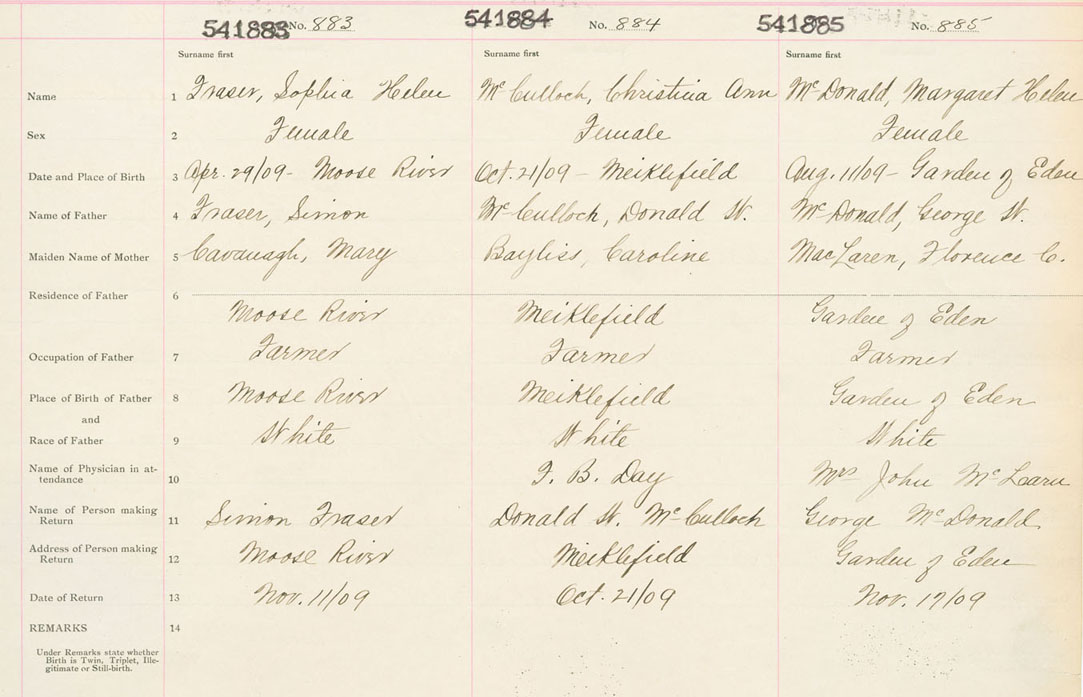 541883 No. 883 541884 No. 884 541885 No. 885
Surname first Surname first Surname first
Name 1 Fraser, Sophia Helen McCulloch, Christina Ann McDonald, Margaret Helen
Sex 2 Female Female Female
Date and Place of Birth 3 Apr. 29/09 - Moose River Oct. 21/09 - Meiklefield Aug. 11/09 - Garden of Eden
Name of Father 4 Fraser, Simon McCulloch, Donald W. McDonald, George W.
Maiden Name of Mother 5 Cavanagh, Mary Bayliss, Caroline MacLaren, Florence C.
Residence of Father 6
Moose River Meiklefield Garden of Eden
Occupation of Father 7 Farmer Farmer Farmer
Place of Birth of Father 8 Moose River Meiklefield Garden of Eden
and
Race of Father 9 White White White
Name of Physician in at-
tendance 10 F. B. Day Mrs John McLaren
Name of Person making
Return 11 Simon Fraser Donald W. McCulloch George McDonald
Address of Person making
Return 12 Moose River Meiklefield Garden of Eden
Date of Return 13 Nov. 11/09 Oct. 21/09 Nov. 17/09
REMARKS 14
Under Remarks state whether
Birth is Twin, Triplet, Ille-
gitimate or Still-birth.